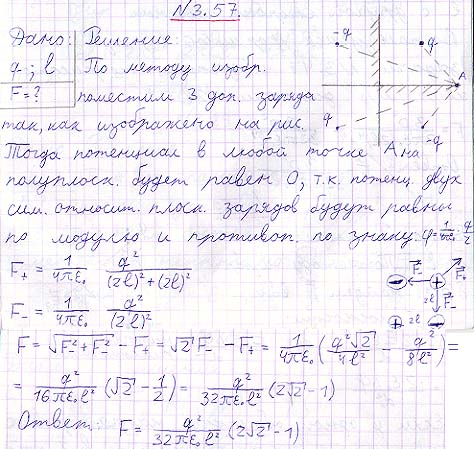 №3.57.
Дано: Решение:
q; l По методу изобр.
F=? поместим 3 доп. заряда
так, как изображено на рис.
Тогда потенциал в любой точке A на
полуплоск. будет равен 0, т.к. потенц. двух
сим. относит. плоск. зарядов будут равны
по модулю и противоп. по знаку. φ = 1/4πε₀ · q/r
-q q
A
q -q
F₊ = 1/4πε₀ q²/((2l)²+(2l)²)
F₋ = 1/4πε₀ q²/(2l)²
F₋ F₊
2l
2l
F = √(F₋²+F₋²) - F₊ = √2 F₋ - F₊ = 1/4πε₀ (q²√2/4l² - q²/8l²) =
= q²/16πε₀l² (√2 - 1/2) = q²/32πε₀l² (2√2 - 1)
Ответ: F = q²/32πε₀l² (2√2 - 1)